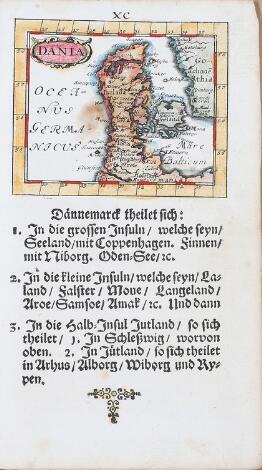 XC
DANIA
OCEA-
NUS
GERMA-
NICUS
Go-
Mare
Balticum
Dännemarck theilet sich:
1. In die grossen Insuln/ welche seyn/
Seeland/mit Coppenhagen. Finnen/
mit Niborg. Oden-See/ꝛc.
2. In die kleine Insuln/welche seyn/La-
land/ Falster/ Mone/ Langeland/
Aroe/Samsoe/ Amak/ ꝛc. Und dann
3. In die Halb-Insul Jutland/ so sich
theilet/ 1. In Schleßwig/ worvon
oben. 2. In Jütland/ so sich theilet
in Arhus/ Alborg/ Wiborg und Ry-
pen.